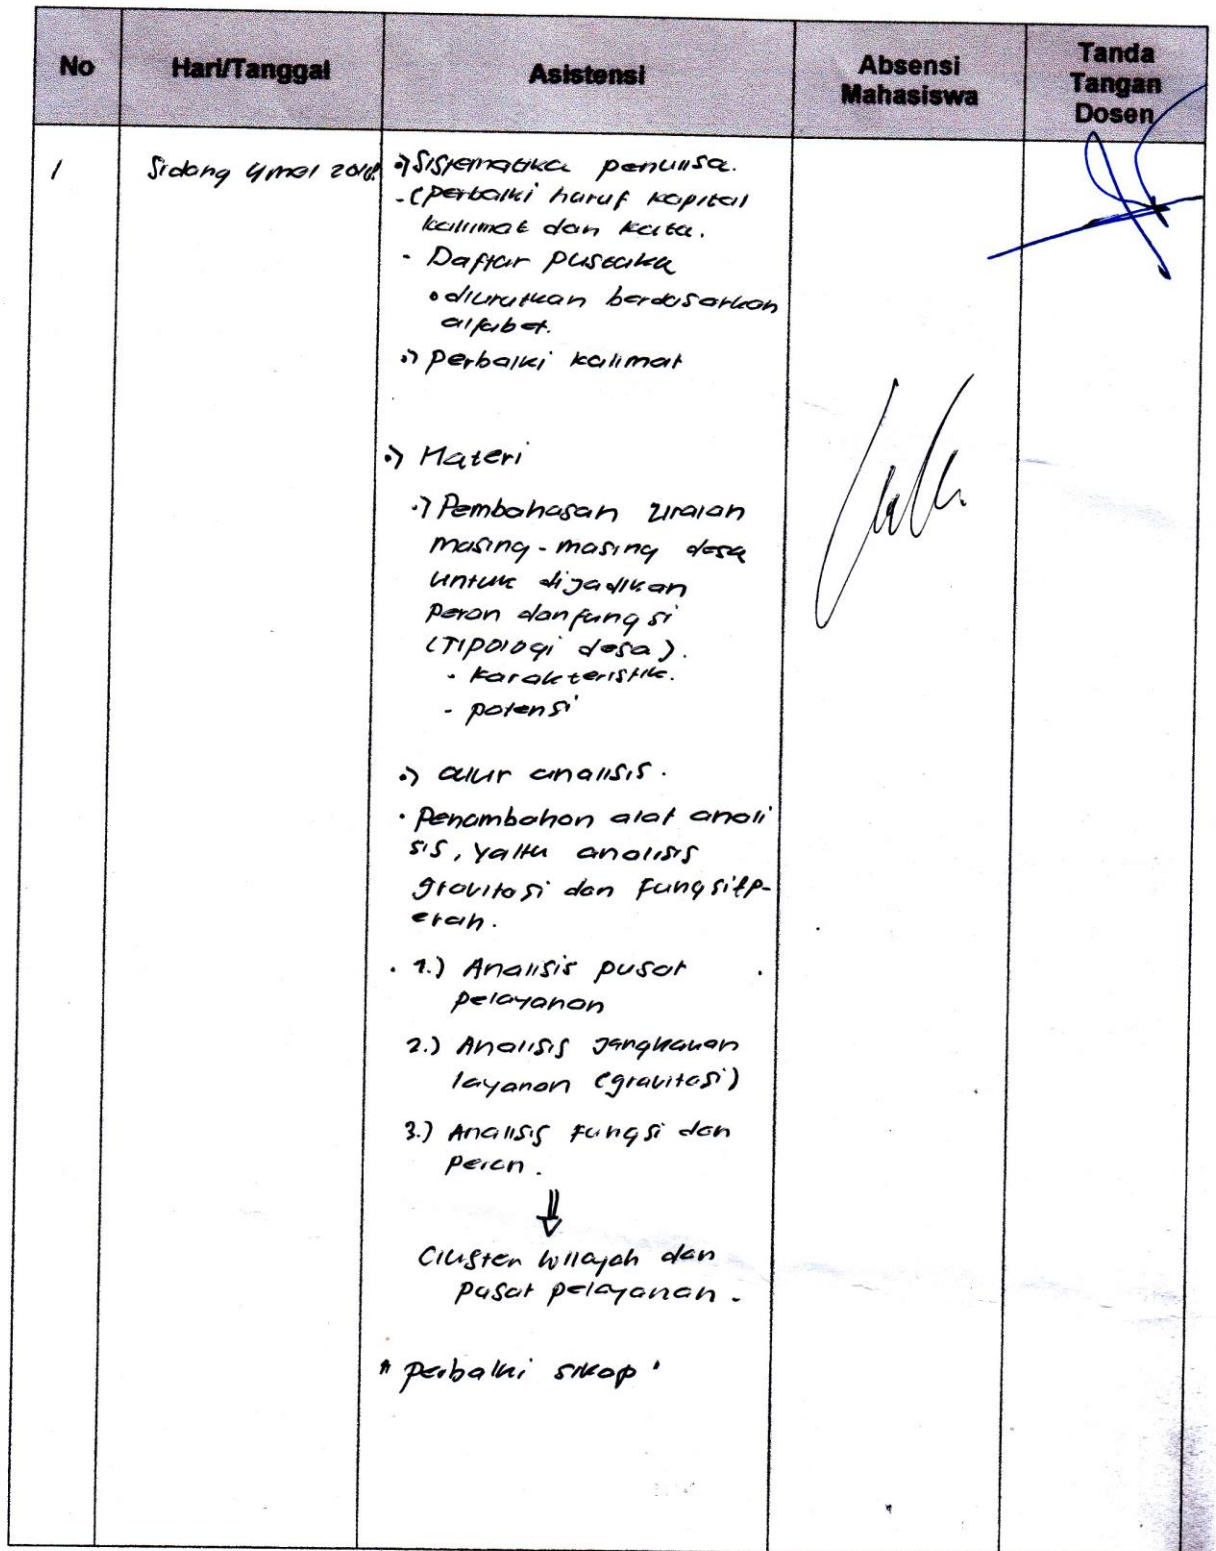 No
Hari/Tanggal
Asistensi
Absensi
Mahasiswa
Tanda
Tangan
Dosen
1
Sidang 4 mei 2018
Sistematika penulisa.
- (Perbaiki huruf kapital
kalimat dan kata.
- Daftar pustaka
• diurutkan berdasarkan
alfabet.
Perbaiki kalimat
Materi
Pembahasan uraian
masing-masing desa
untuk dijadikan
Peran dan fungsi
(Tipologi desa).
- karakteristik.
- potensi
alur analisis.
• Penambahan alat anali
sis, yaitu analisis
gravitasi dan
erah.
1.) Analisis pusat
pelayanan
2.) Analisis Jangkauan
layanan (gravitasi)
3.) Analisis Fungsi dan
Peran.
⇓
Cluster wilayah dan
pusat pelayanan.
" Perbaiki sikap '